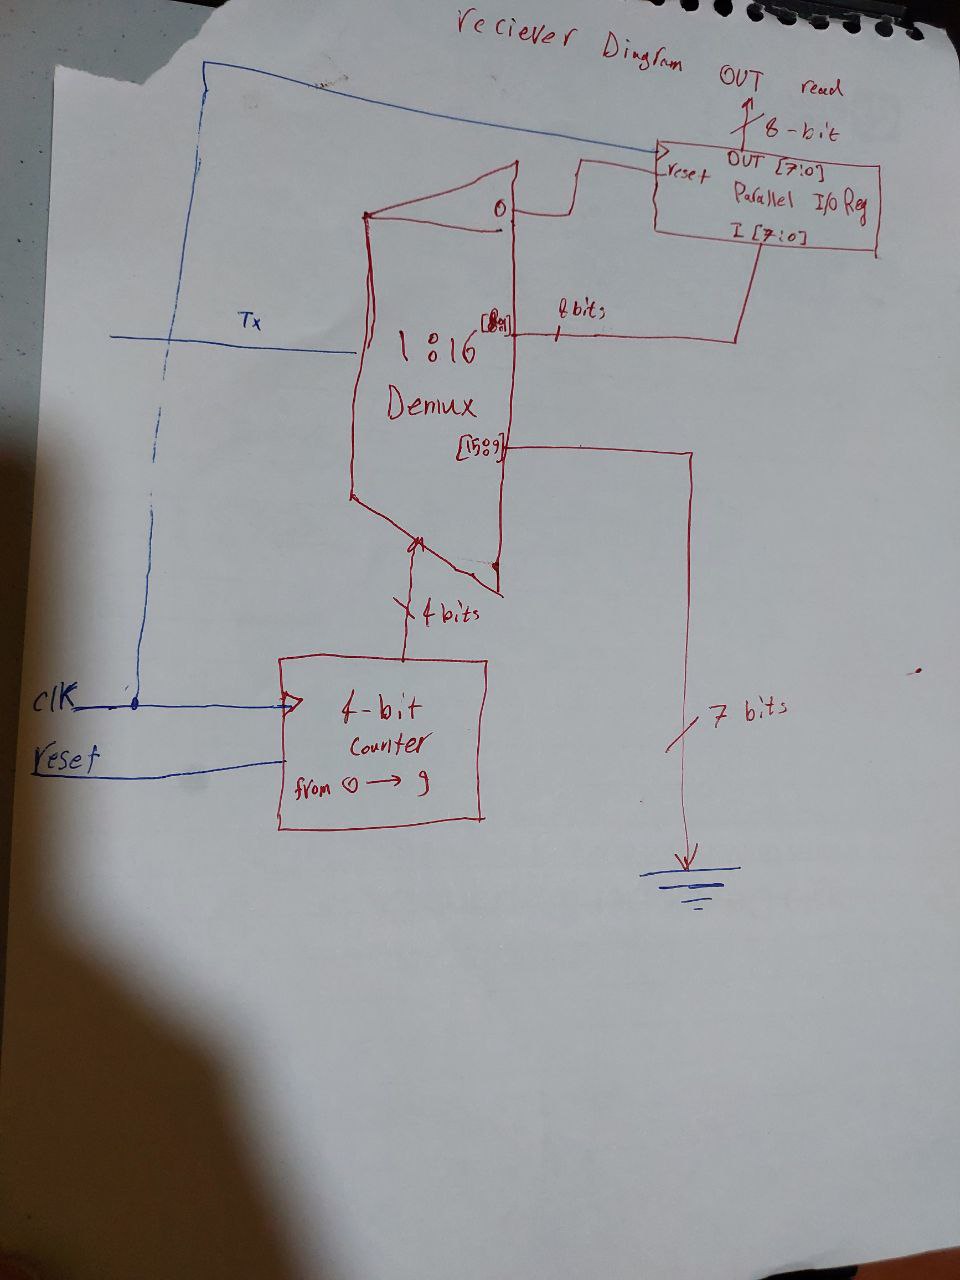 reciever Diagram
OUT read
8-bit
OUT [7:0]
reset
Parallel I/O Reg
I [7:0]
0
Tx
[8:1]
8bits
1:16
Demux
[15:9]
4 bits
clk
4-bit
counter
reset
from 0 → 9
7 bits